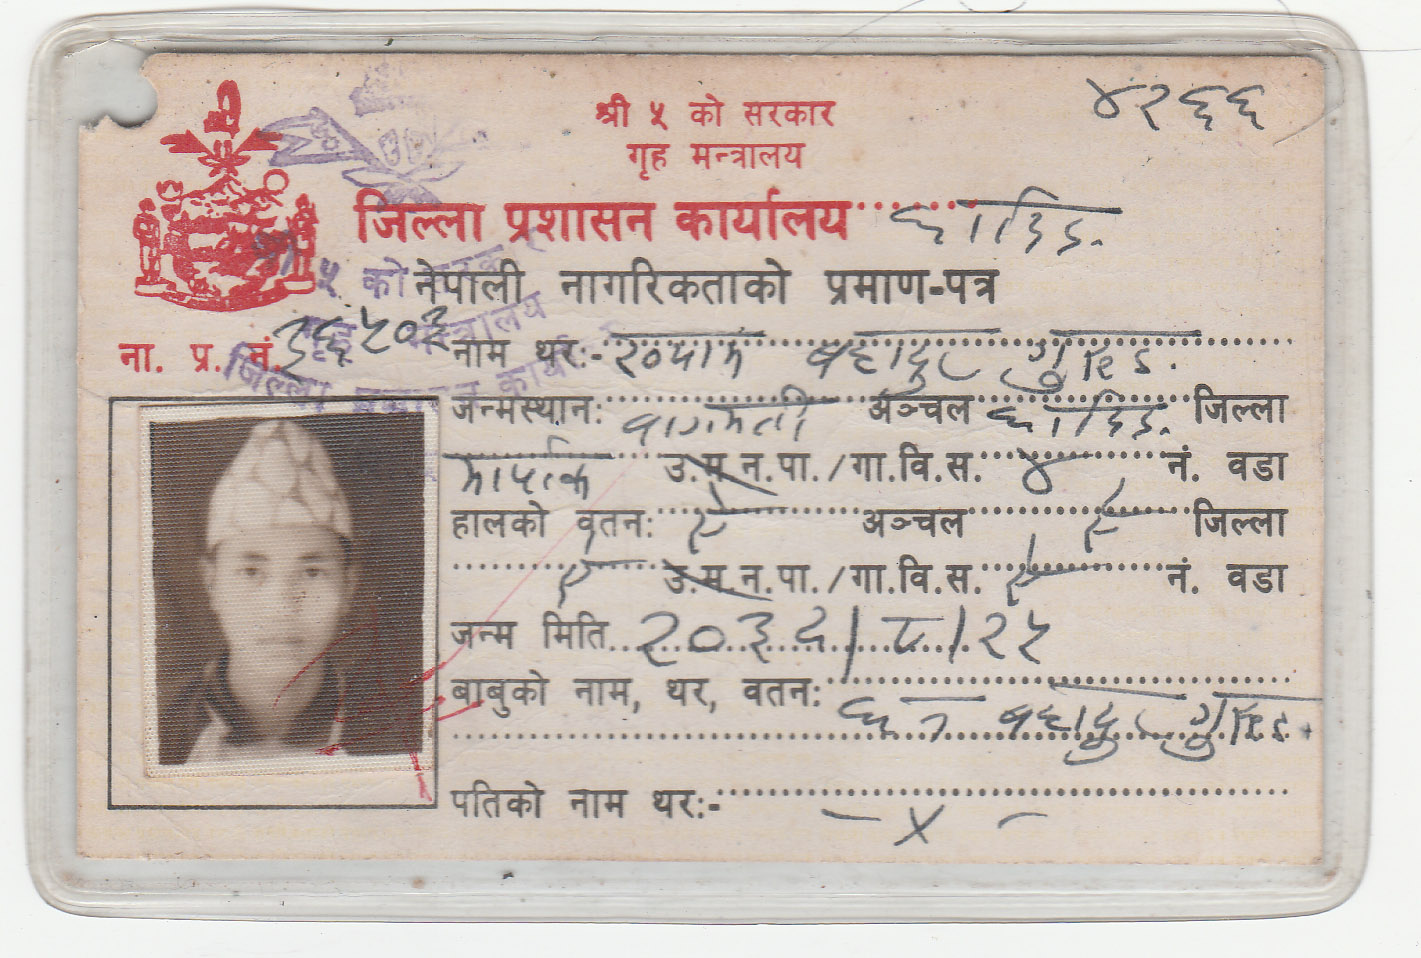 ४२६६
श्री ५ को सरकार
गृह मन्त्रालय
जिल्ला प्रशासन कार्यालय धादिङ
नेपाली नागरिकताको प्रमाण-पत्र
श्री ५ को सरकार
गृह मन्त्रालय
जिल्ला प्रशासन कार्यालय
ना. प्र. नं. ३६५०३
नाम थर:- बहादुर गुरुङ
जन्मस्थान: बागमती अञ्चल धादिङ जिल्ला
मार्पाक उ.म.न.पा./गा.वि.स. ४ नं. वडा
हालको वतन: ऐ अञ्चल ऐ जिल्ला
ऐ उ.म.न.पा./गा.वि.स. ऐ नं. वडा
जन्म मिति २०३८/८/२५
बाबुको नाम, थर, वतन:
धन बहादुर गुरुङ
पतिको नाम थर:- - x -